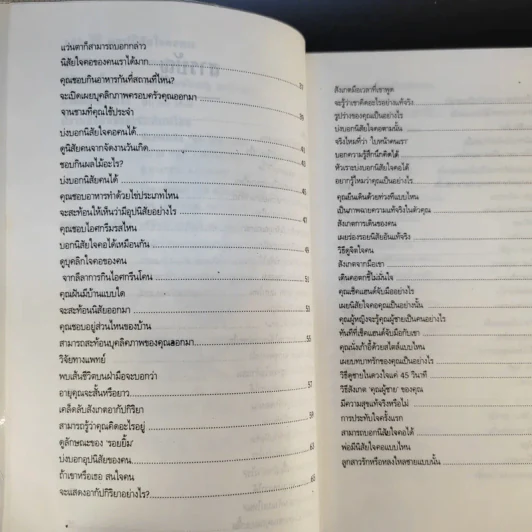 แว่นตาก็สามารถบอกกล่าว
นิสัยใจคอของคนเราได้มาก
คุณชอบกินอาหารกันที่สถานที่ไหน?
จะเปิดเผยบุคลิกภาพครอบครัวคุณออกมา
จานชามที่คุณใช้ประจำ
บ่งบอกนิสัยใจคอคนได้
ดูนิสัยคนจากจัดงานวันเกิด 41
ชอบกินผลไม้อะไร?
บ่งบอกนิสัยคนได้
คุณชอบอาหารทำด้วยไข่ประเภทไหน
จะสะท้อนให้เห็นว่ามีอุปนิสัยอย่างไร 47
คุณชอบไอศกรีมรสไหน
บอกนิสัยใจคอได้เหมือนกัน 49
ดูบุคลิกใจคอของคน
จากลีลาการกินไอศกรีมโคน 51
คุณฝันมีบ้านแบบใด
จะสะท้อนนิสัยออกมา 53
คุณชอบอยู่ส่วนไหนของบ้าน
สามารถสะท้อนบุคลิคภาพของคุณออกมา 55
วิจัยทางแพทย์
พบเส้นชีวิตบนฝ่ามือจะบอกว่า
อายุคุณจะสั้นหรือยาว 57
เคล็ดลับสังเกตอากัปกิริยา
สามารถรู้ว่าคุณคิดอะไรอยู่ 59
ดูลักษณะของ 'รอยยิ้ม'
บ่งบอกอุปนิสัยของคน 63
ถ้าเขาหรือเธอ สนใจคน
จะแสดงอากัปกิริยาอย่างไร? 65
สังเกตมือเวลาที่เขาพูด
จะรู้ว่าเขาคิดอะไรอย่างแท้จริง
รูปร่างของคุณเป็นอย่างไร
บ่งบอกนิสัยใจคอตามนั้น
จริงไหมที่ว่า 'ใบหน้าคนเรา'
บอกความรู้สึกนึกคิดได้
หัวเราะบ่งบอกนิสัยใจคอได้
อยากรู้ไหมว่าคุณเป็นอย่างไร
คุณยืนเดินด้วยท่วงทีแบบไหน
เป็นภาพฉายความแท้จริงในตัวคุณ
สังเกตการเดินของคน
เผยร่องรอยนิสัยอันแท้จริง
วิธีดูจิตใจคน
สังเกตจากมือเขา
เดินคอตกชี้ไม่มั่นใจ
คุณเช็คแฮนด์จับมืออย่างไร
เผยนิสัยใจคอคุณเป็นอย่างนั้น
คุณผู้หญิงจะรู้คุณผู้ชายเป็นคนอย่างไร
ทันทีที่เช็คแฮนด์จับมือกับเขา
คุณนั่งเก้าอี้ด้วยสไตล์แบบไหน
เผยบทบาทรักของคุณเป็นอย่างไร
วิธีดูชายในดวงใจแค่ 45 วินาที
วิธีสังเกต 'คุณผู้ชาย' ของคุณ
มีความสุขแท้จริงหรือไม่
การประทับใจครั้งแรก
สามารถบอกนิสัยใจคอได้
พ่อมีนิสัยใจคอแบบไหน
ลูกสาวรักหรือหลงใหลชายแบบนั้น